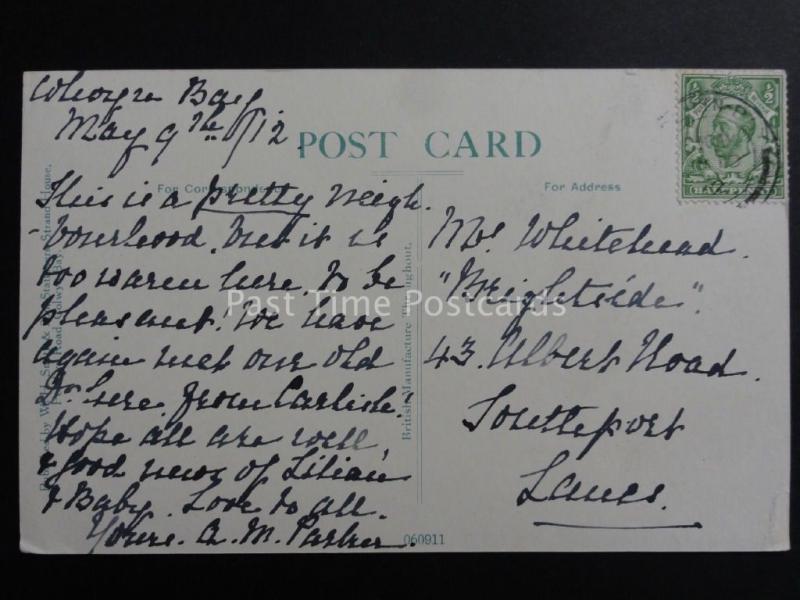 Colwyn Bay
May 9th /12.
POST CARD
For Correspondence
For Address
This is a pretty neigh-
-bourhood, but it is
too warm here to be
pleasant. We have
again met our old
Dr. here from Carlisle!
Hope all are well,
& good news of Lilian
& Baby. Love to all.
Yours. A. M. Parker.
British Manufacture Throughout.
060911
HALFPENNY
Mrs Whitehead.
"Brightside".
43. Albert Road.
Southport
Lancs.
Past Time Postcards